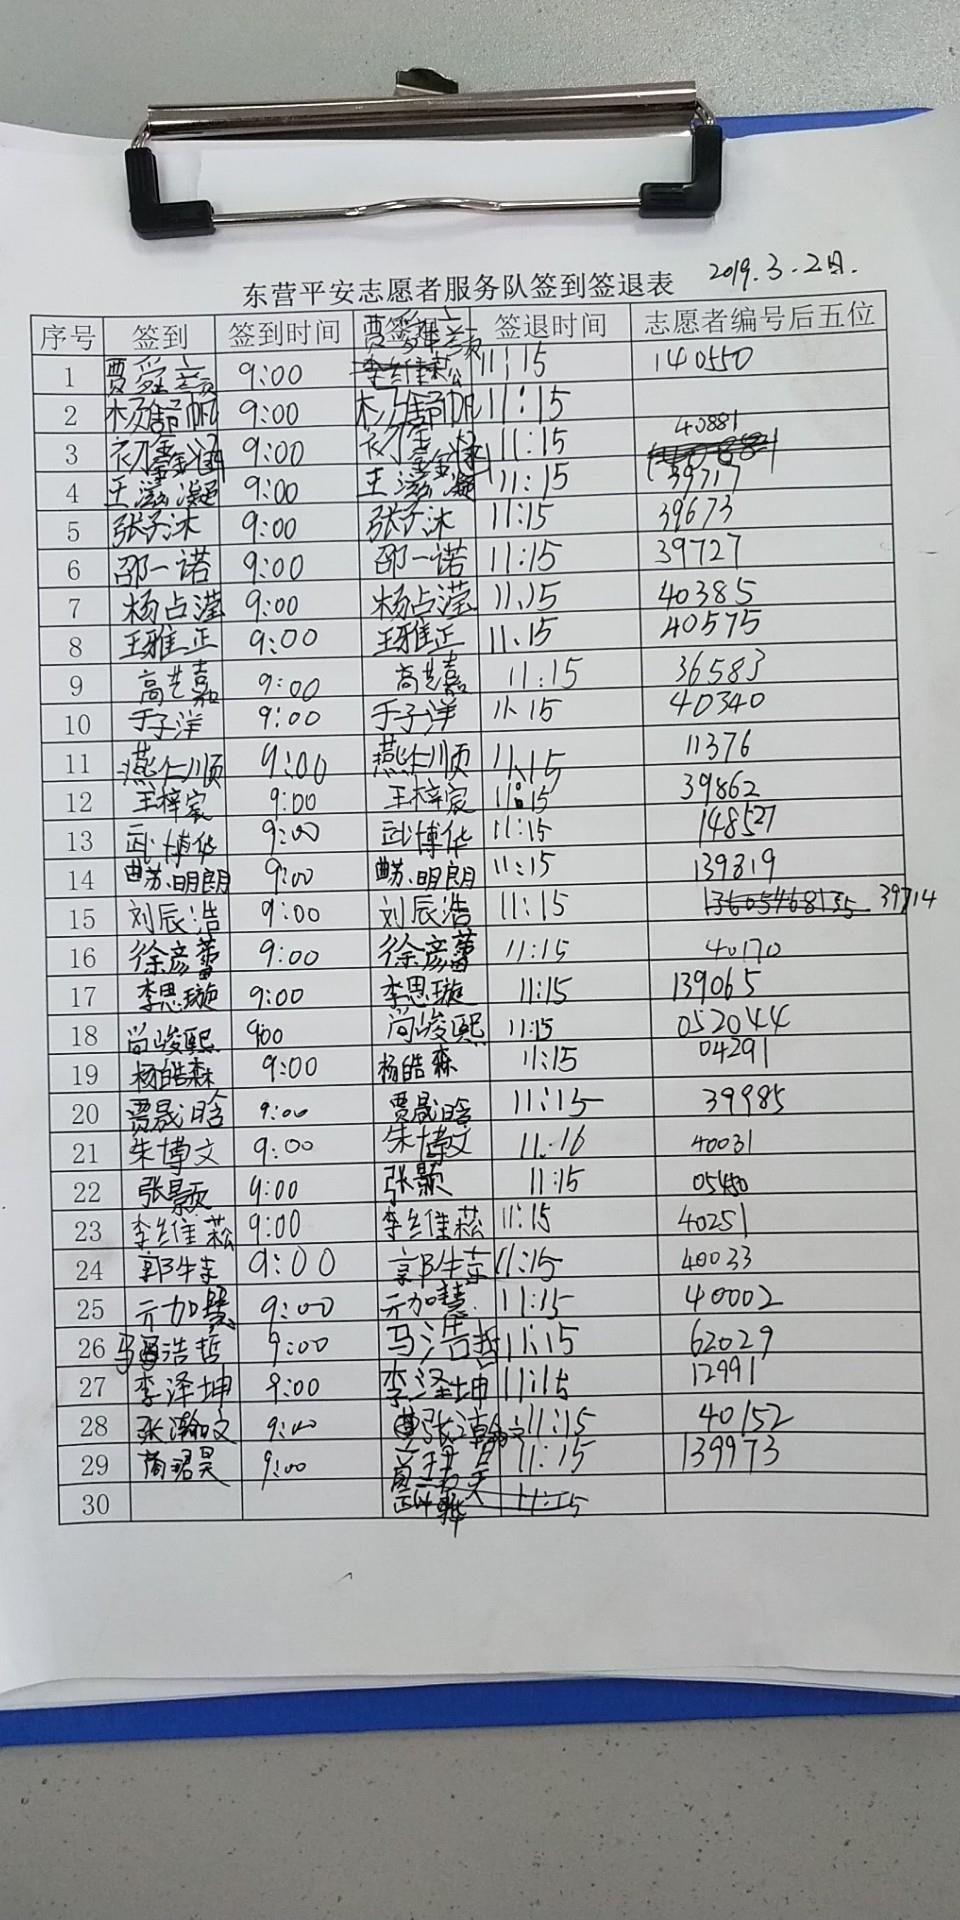 东营平安志愿者服务队签到签退表 2019.3.2日.
序号 签到 签到时间 签退时间 志愿者编号后五位
1 9:00 11:15 140550
2 杨舒帆 9:00 杨舒帆 11:15
3 9:00 11:15 40881
4 王滋凝 9:00 王滋凝 11:15 39717
5 张子沐 9:00 张子沐 11:15 39673
6 邵一诺 9:00 邵一诺 11:15 39727
7 杨占滢 9:00 杨占滢 11:15 40385
8 王雅正 9:00 王雅正 11:15 40575
9 高艺嘉 9:00 高艺嘉 11:15 36583
10 于子洋 9:00 于子洋 11:15 40340
11 燕仁顺 9:00 燕仁顺 11:15 11376
12 王梓宸 9:00 王梓宸 11:15 39862
13 武博华 9:00 武博华 11:15 148527
14 明朗 9:00 明朗 11:15 139819
15 刘辰浩 9:00 刘辰浩 11:15 13605468135 39714
16 徐彦蕾 9:00 徐彦蕾 11:15 40170
17 李思璇 9:00 李思璇 11:15 139065
18 尚峻熙 9:00 尚峻熙 11:15 052044
19 杨皓森 9:00 杨皓森 11:15 04291
20 贾晟晗 9:00 贾晟晗 11:15 39985
21 朱博文 9:00 朱博文 11:16 40031
22 张颢 9:00 张颢 11:15 05450
23 李维菘 9:00 李维菘 11:15 40251
24 郭 9:00 郭 11:15 40033
25 亓加慧 9:00 亓加慧 11:15 40002
26 马浩哲 9:00 马浩哲 11:15 62029
27 李泽坤 9:00 李泽坤 11:15 12991
28 张瀚文 9:00 张瀚文 11:15 40152
29 9:00 11:15 139973
30 11:15